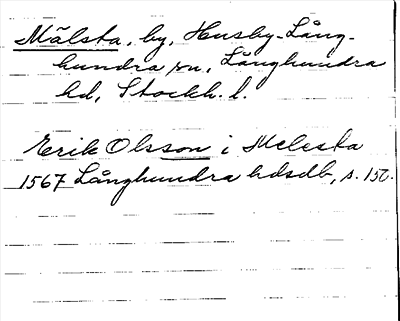 Mälsta, by, Husby-Lång-
hundra sn, Långhundra
hd, Stockh. l.
Erik Olsson i Melesta
1567 Långhundra hdsdb, s. 150.